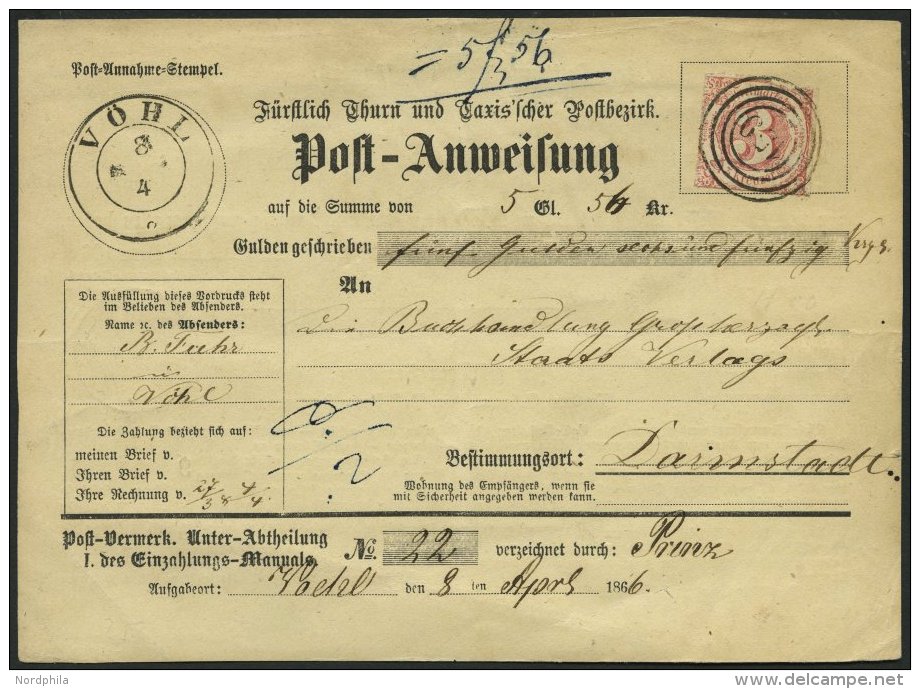 = 5 f 56
Post-Annahme-Stempel.
VÖHL
8
4
Fürstlich Thurn und Taxis'scher Postbezirk.
3
Post-Anweisung
auf die Summe von 5 Gl. 56 Kr.
Gulden geschrieben fünf Gulden sechs und fünfzig
An
Die Ausfüllung dieses Vordrucks steht
im Belieben des Absenders.
Name ec. des Absenders:
B. Fuhr
in
Vöhl
Die Buchhandlung Großherzogl.
Staats Verlags
Die Zahlung bezieht sich auf:
meinen Brief v.
Ihren Brief v.
Ihre Rechnung v. 27/3 & 4/4.
2
Bestimmungsort: Darmstadt.
Wohnung des Empfängers, wenn sie
mit Sicherheit angegeben werden kann.
Post-Vermerk. Unter-Abtheilung
I. des Einzahlungs-Manuals. No. 22 verzeichnet durch: Prinz
Aufgabeort: Voehl den 8 ten April 1866.
Nordphila
delcampe.net